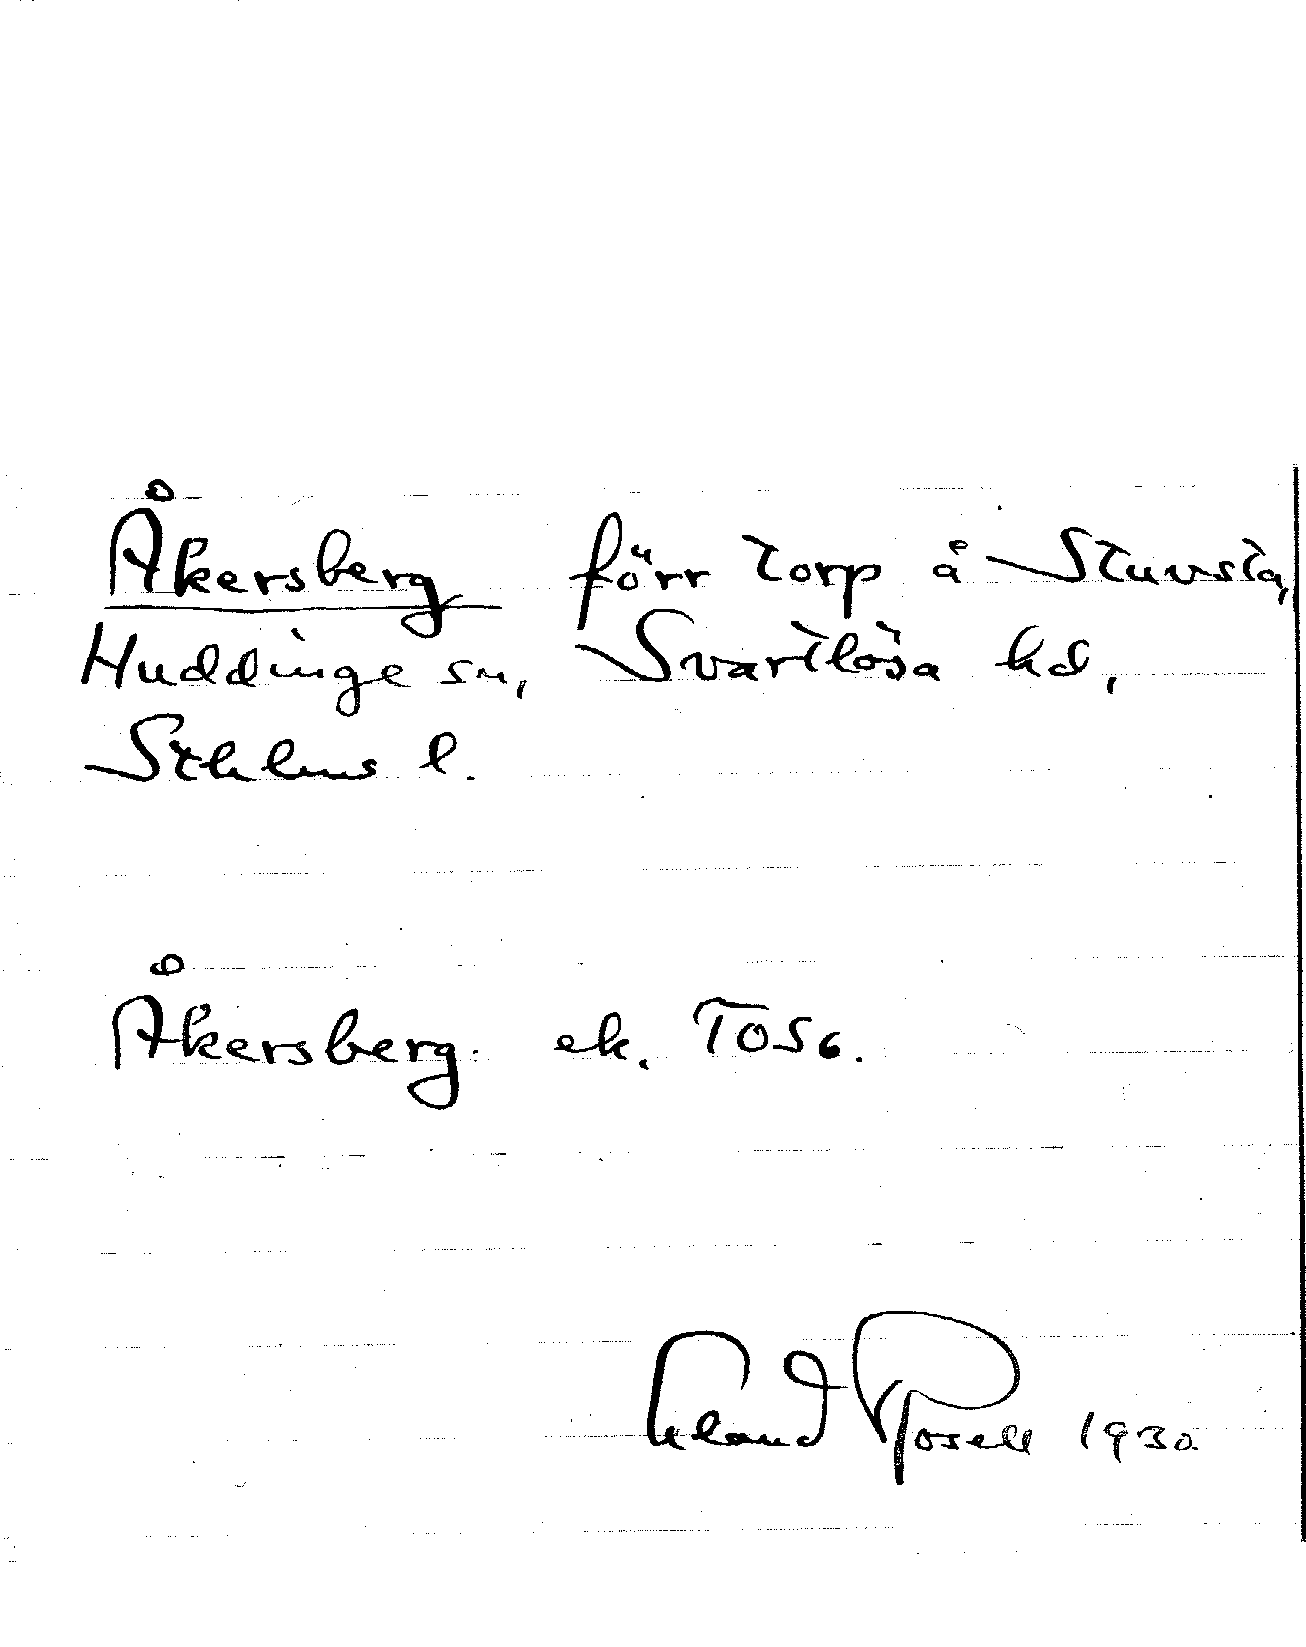 Åkersberg förr torp å Stuvsta,
Huddinge sn, Svartlösa hd,
Sthlms l.
Åkersberg. ek. TOS6.
Erland Rosell 1930